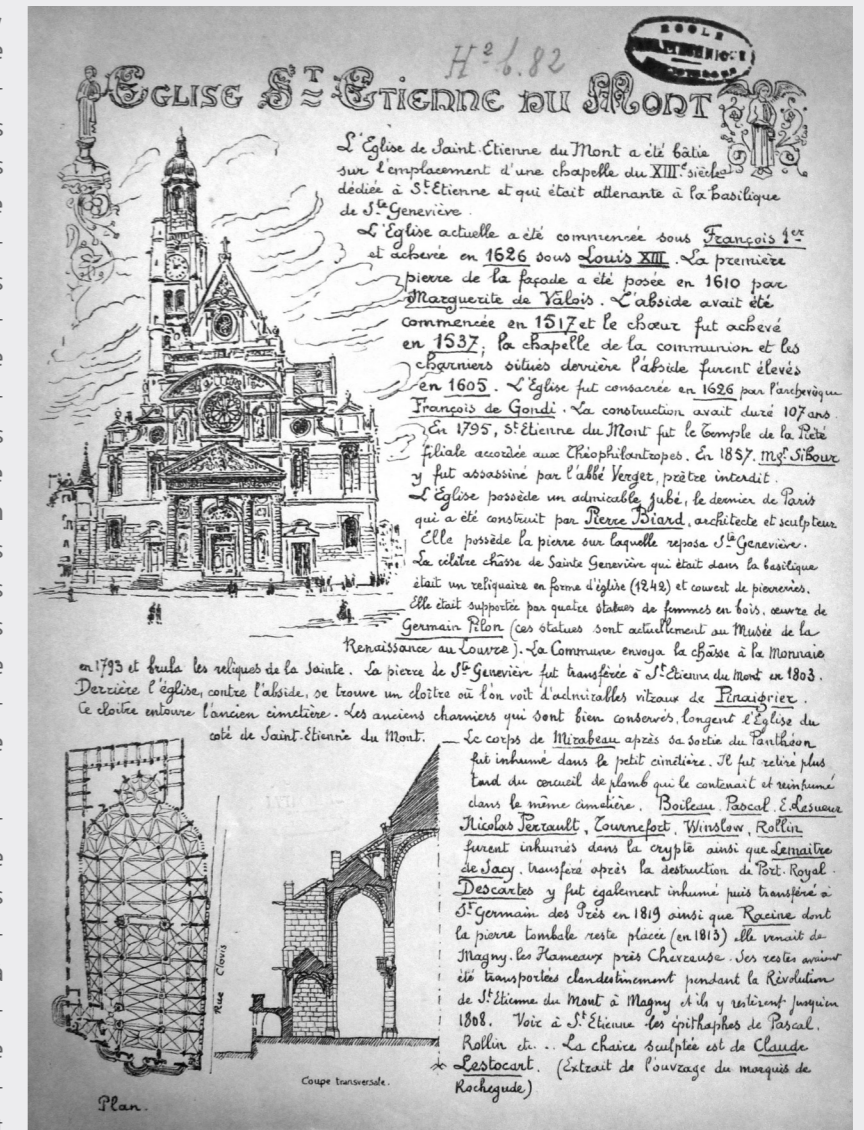 H² b. 82
ECOLE
POLYTECHNIQUE
EGLISE ST ETIENNE DU MONT
L'Eglise de Saint. Etienne du Mont a été bâtie
sur l'emplacement d'une chapelle du XIIIe. siècle
dédiée à St Etienne et qui était attenante à la basilique
de Ste Geneviève.
L'Eglise actuelle a été commencée sous François 1er
et achevée en 1626 sous Louis XIII. La première
pierre de la façade a été posée en 1610 par
Marguerite de Valois. L'abside avait été
commencée en 1517 et le chœur fut achevé
en 1537; la chapelle de la communion et les
charniers situés derrière l'abside furent élevés
en 1605. L'Eglise fut consacrée en 1626 par l'archevêque
François de Gondi. La construction avait duré 107 ans.
En 1795, St Etienne du Mont fut le Temple de la Piété
filiale accordée aux Théophilantropes. En 1857. Mgr. Sibour
y fut assassiné par l'abbé Verger, prêtre interdit.
L'Eglise possède un admirable jubé, le dernier de Paris
qui a été construit par Pierre Biard, architecte et sculpteur
Elle possède la pierre sur laquelle reposa Ste Geneviève.
La célèbre châsse de Sainte Geneviève qui était dans la basilique
était un reliquaire en forme d'église (1242) et couvert de pierreries.
Elle était supportée par quatre statues de femmes en bois, œuvre de
Germain Pilon (ces statues sont actuellement au Musée de la
Renaissance au Louvre). La Commune envoya la châsse à la Monnaie
en 1793 et brula les reliques de la Sainte. La pierre de Ste Geneviève fut transférée à St Etienne du Mont en 1803.
Derrière l'église, contre l'abside, se trouve un cloître où l'on voit d'admirables vitraux de Pinaigrier.
Ce cloître entoure l'ancien cimetière. Les anciens charniers qui sont bien conservés, longent l'Eglise du
coté de Saint. Etienne du Mont.
Le corps de Mirabeau après sa sortie du Panthéon
fut inhumé dans le petit cimetière. Il fut retiré plus
tard du cercueil de plomb qui le contenait et reinhumé
dans le même cimetière. Boileau. Pascal. E. Lesueur
Nicolas Perrault, Tournefort, Winslow, Rollin
furent inhumés dans la crypte ainsi que Lemaitre
de Sacy, transféré après la destruction de Port. Royal.
Descartes y fut également inhumé puis transféré à
St Germain des Près en 1819 ainsi que Racine dont
la pierre tombale reste placée (en 1813) elle venait de
Magny. les Hameaux près Chevreuse. Ses restes avaient
été transportées clandestinement pendant la Révolution
de St Etienne du Mont à Magny et ils y restèrent jusqu'en
1808. Voir à St Etienne les épithaphes de Pascal,
Rollin etc... La chaire sculptée est de Claude
Lestocart. (Extrait de l'ouvrage du marquis de
Rochegude)
Rue Clovis
Coupe transversale.
Plan.